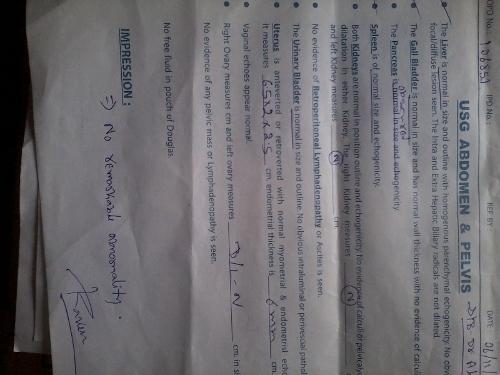 OPD No. 106851 IPD No. REF BY : DATE 06/11
USG ABDOMEN & PELVIS
The Liver is normal in size and outline with homogenous parenchymal echogenicity. No obv
focal/diffuse lesion seen. The Intra and Extra Hepatic Biliary radicals are not dilated.
The Gall Bladder is normal in size and has normal wall thickness with no evidence of calculi
The Pancreas is normal in size and echogenicity.
Spleen is of normal size and echogenicity.
Both Kidneys are normal in position outline and echogenicity. No evidence of calculi or pelvicaly
dilatation in either Kidney. The right Kidney measures N
and left Kidney measures N cm
No evidence of Retroperitoneal Lymphadenopathy or Ascites is seen.
The Urinary Bladder is normal in size and outline. No obvious intraluminal or perivesical pathol
Uterus is anteverted or retroverted with normal myometrial & endometrial echo
It measures 65x2x3.5 cm endometrial thickness is 6mm cm
Vaginal echoes appear normal.
Right Ovary measures cm and left ovary measures B/L - N cm. in si
No evidence of any pelvic mass or Lymphadenopathy is seen.
No free fluid in pouch of Douglas.
IMPRESSION :
⇒ No remarkable abnormality.